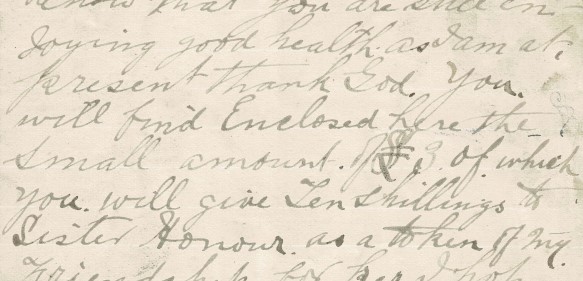 know that you are still en-
joying good health as I am at,
present thank God. You.
will find Enclosed here the
small amount. of £3. of which
you. will give Ten shillings to
Sister Honour. as a token of my.
Friendship for her I hop